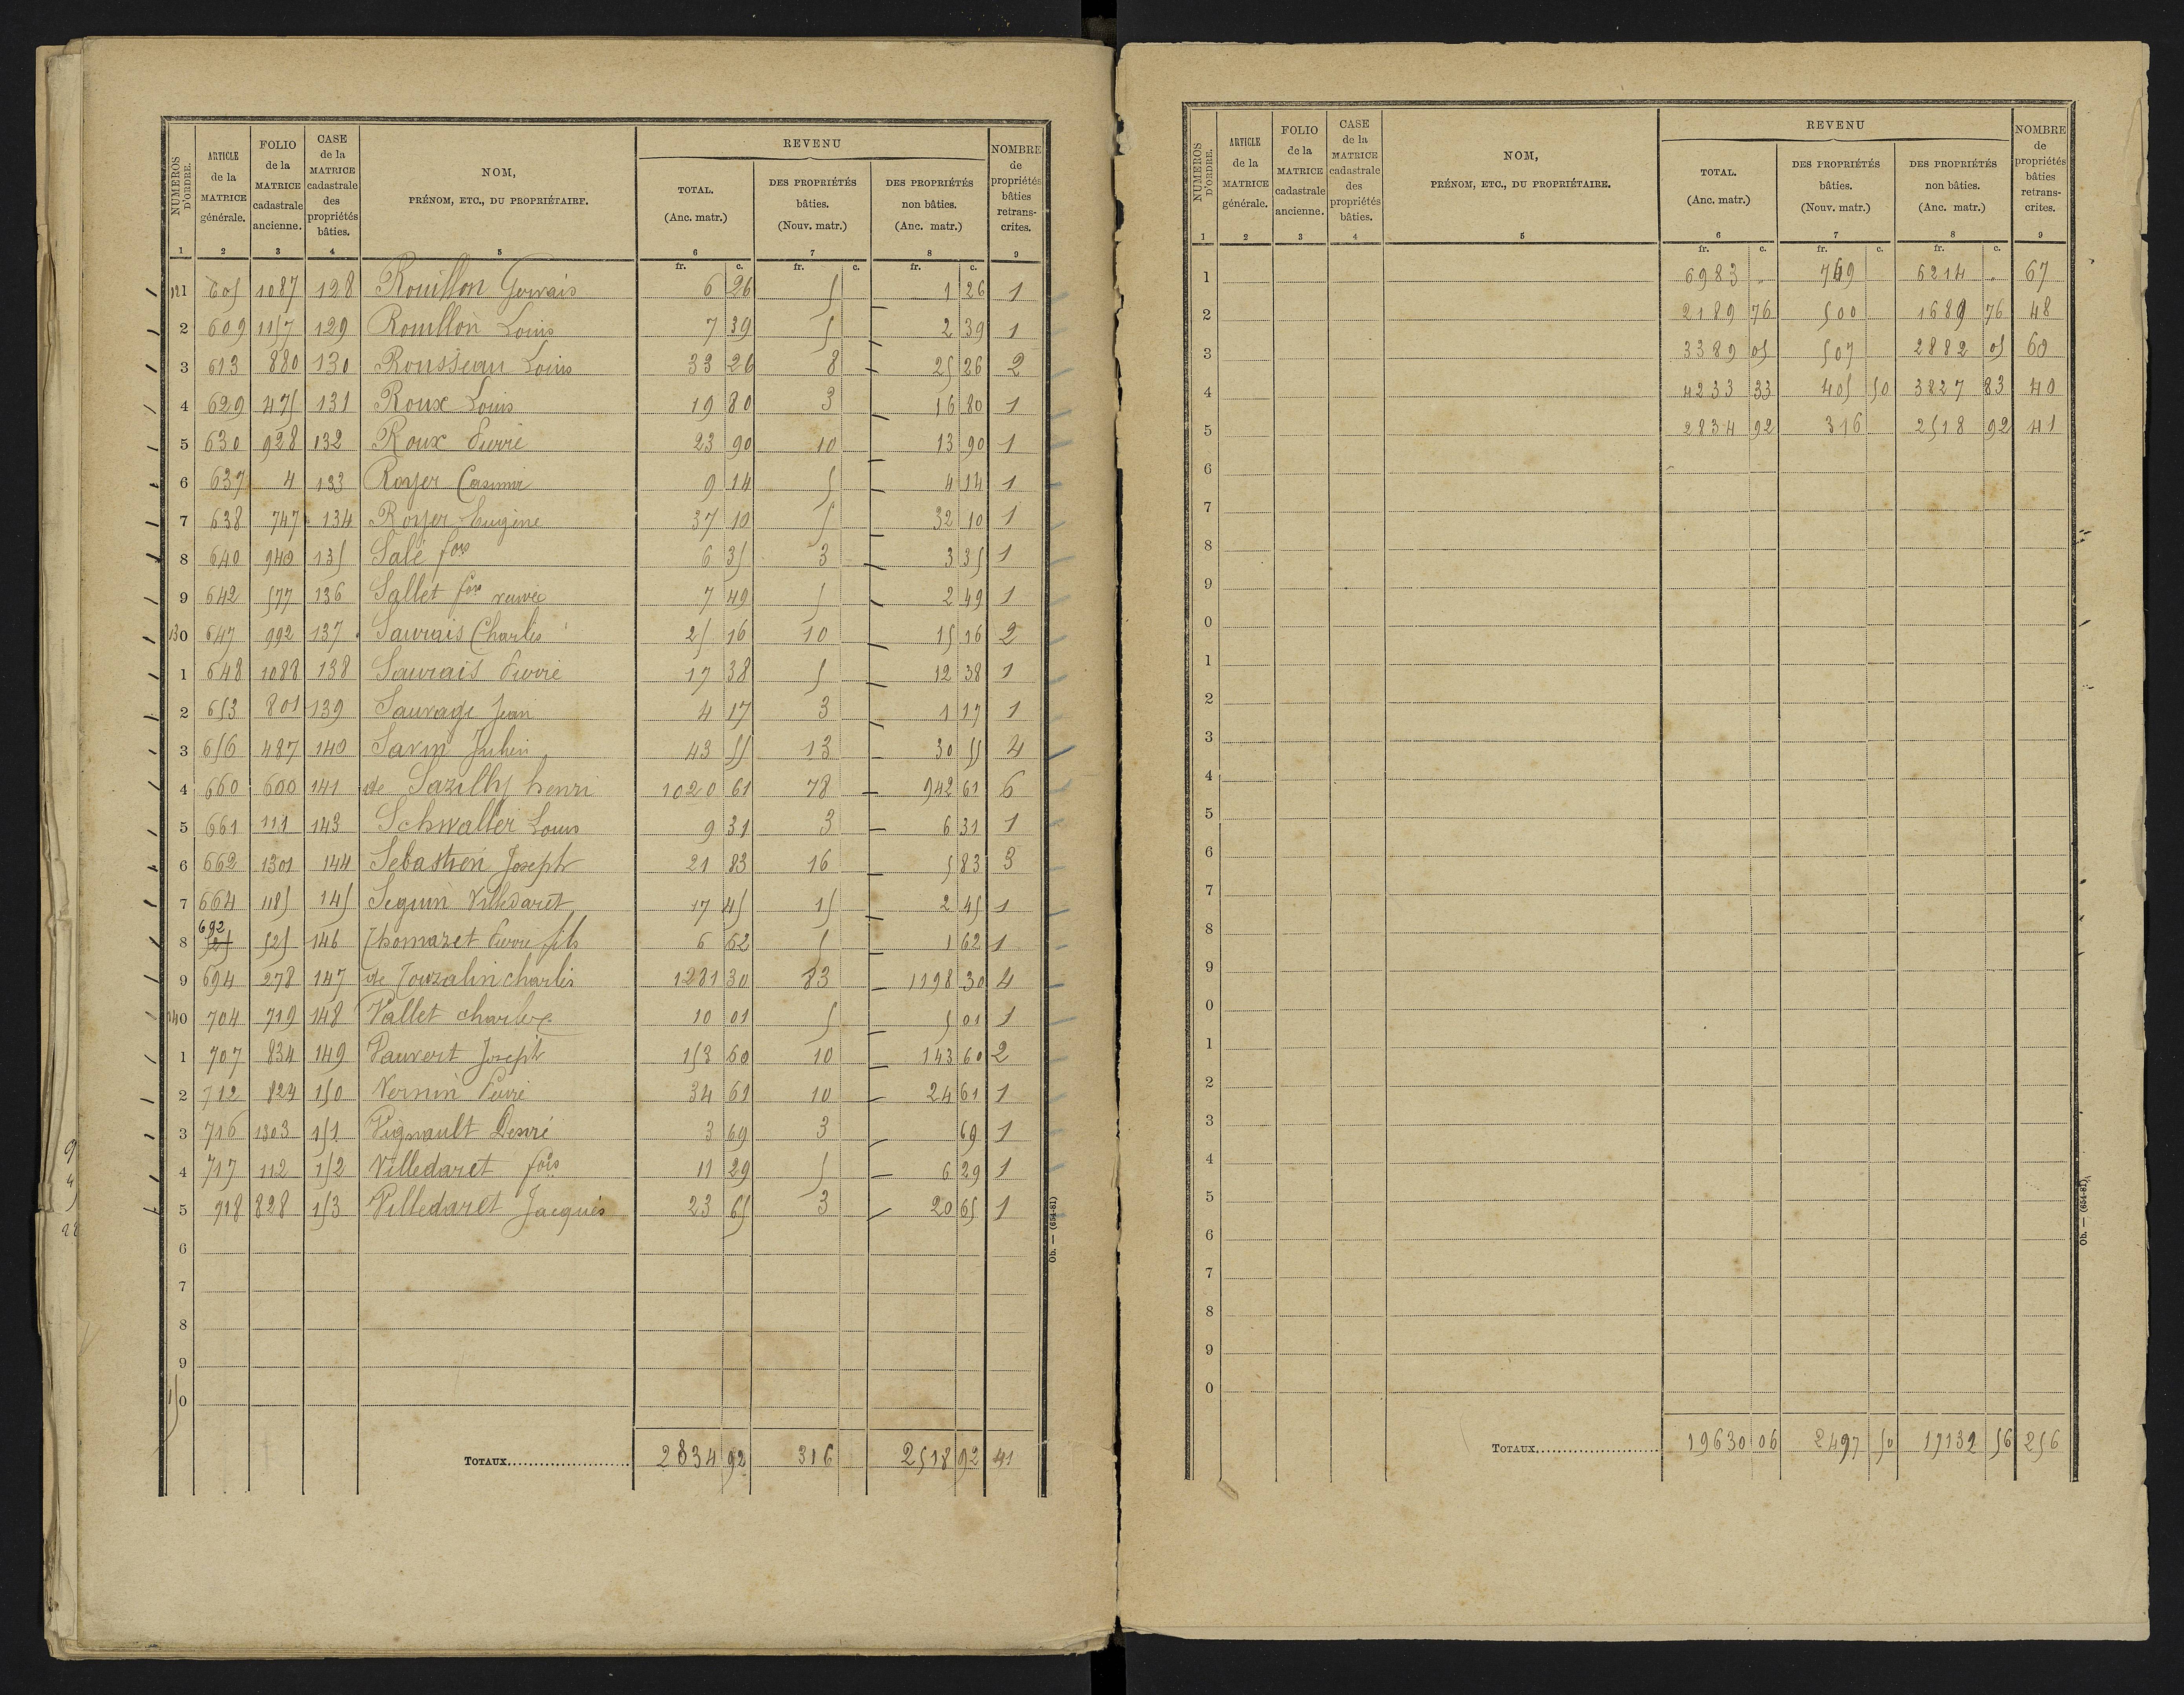 NUMÉROS D'ORDRE. | ARTICLE de la MATRICE générale. | FOLIO de la MATRICE cadastrale ancienne. | CASE de la MATRICE cadastrale des propriétés bâties. | NOM, PRÉNOM, ETC., DU PROPRIÉTAIRE. | REVENU | NOMBRE de propriétés bâties retrans-crites.
TOTAL. (Anc. matr.) | DES PROPRIÉTÉS bâties. (Nouv. matr.) | DES PROPRIÉTÉS non bâties. (Anc. matr.)
1 2 3 4 5 6 7 8 9
fr. c. fr. c. fr. c.
121 605 1087 128 Rouillon Gervais 6 26 5 1 26 1
2 609 1157 129 Rouillon Louis 7 39 5 2 39 1
3 613 880 130 Rousseau Louis 33 26 8 25 26 2
4 629 475 131 Roux Louis 19 80 3 16 80 1
5 630 928 132 Roux Pierre 23 90 10 13 90 1
6 637 4 133 Royer Casimir 9 14 5 4 14 1
7 638 747 134 Royer Eugène 37 10 5 32 10 1
8 640 940 135 Salé fois 6 35 3 3 35 1
9 642 577 136 Sallet fois veuve 7 49 5 2 49 1
130 647 992 137 Saurais Charles 25 16 10 15 16 2
1 648 1088 138 Saurais Pierre 17 38 5 12 38 1
2 653 801 139 Sauvage Jean 4 17 3 1 17 1
3 656 487 140 Savin Julien 43 55 13 30 55 4
4 660 600 141 de Sazilly henri 1020 61 78 942 61 6
5 661 111 143 Schwaller Louis 9 31 3 6 31 1
6 662 1301 144 Sebastien Joseph 21 83 16 5 83 3
7 664 1185 145 Seguin Villedaret 17 45 15 2 45 1
692
8 525 146 Thomazet Pierre fils 6 62 5 1 62 1
9 694 278 147 de Touzalin charles 1281 30 83 1198 30 4
140 704 719 148 Vallet charles 10 01 5 5 01 1
1 707 834 149 Vauvert Joseph 153 60 10 143 60 2
2 712 824 150 Vernin Pierre 34 61 10 24 61 1
3 716 1303 151 Vignault Désiré 3 69 3 69 1
4 717 112 152 Villedaret fois 11 29 5 6 29 1
5 718 828 153 Villedaret Jacques 23 65 3 20 65 1
6
7
8
9
150
TOTAUX 2834 92 316 2518 92 41
Ob. — (654-81)
NUMÉROS D'ORDRE. | ARTICLE de la MATRICE générale. | FOLIO de la MATRICE cadastrale ancienne. | CASE de la MATRICE cadastrale des propriétés bâties. | NOM, PRÉNOM, ETC., DU PROPRIÉTAIRE. | REVENU | NOMBRE de propriétés bâties retrans-crites.
TOTAL. (Anc. matr.) | DES PROPRIÉTÉS bâties. (Nouv. matr.) | DES PROPRIÉTÉS non bâties. (Anc. matr.)
1 2 3 4 5 6 7 8 9
fr. c. fr. c. fr. c.
1 6983 " 769 6214 " 67
2 2189 76 500 1689 76 48
3 3389 05 507 2882 05 60
4 4233 33 405 50 3827 83 40
5 2834 92 316 2518 92 41
6
7
8
9
0
1
2
3
4
5
6
7
8
9
0
1
2
3
4
5
6
7
8
9
0
TOTAUX 19630 06 2497 50 17132 56 256
Ob. — (654-81)